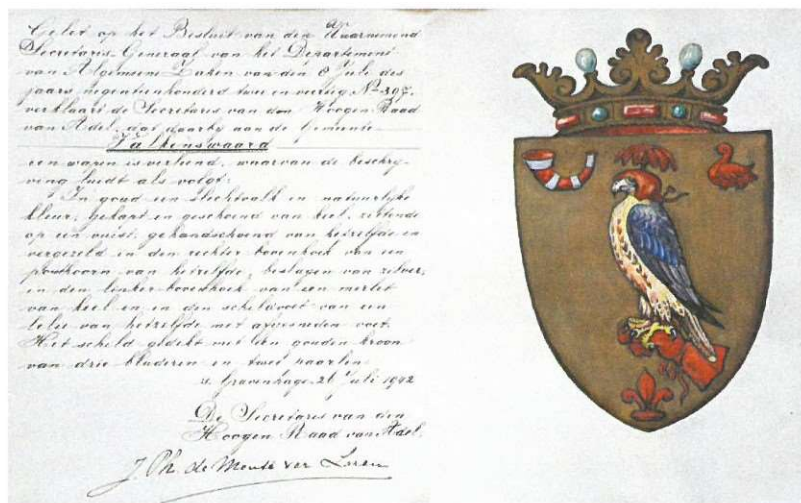 Gelet op het Besluit van den Waarnemend
Secretaris-Generaal van het Departement
van Algemeene Zaken van den 8 Juli des
jaars negentienhonderd twee en veertig No 397.
verklaart de Secretaris van den Hoogen Raad
van Adel, dat daarbij aan de Gemeente
Valkenswaard
een wapen is verleend, waarvan de beschrij-
ving luidt als volgt:
In goud een slechtvalk in natuurlijke
kleur, gekapt en geschoeid van keel, zittende
op een vuist, gehandschoend van hetzelfde en
vergezeld in den rechter bovenhoek van een
posthoorn van hetzelfde, beslagen van zilver,
in den linker bovenhoek van een merlet
van keel en in den schildvoet van een
lelie van hetzelfde met afgesneden voet.
Het schild gedekt met een gouden kroon
van drie bladeren en twee paarlen
's Gravenhage, 26 Juli 1942
De Secretaris van den
Hoogen Raad van Adel.
J. Ph. de Monté ver Loren